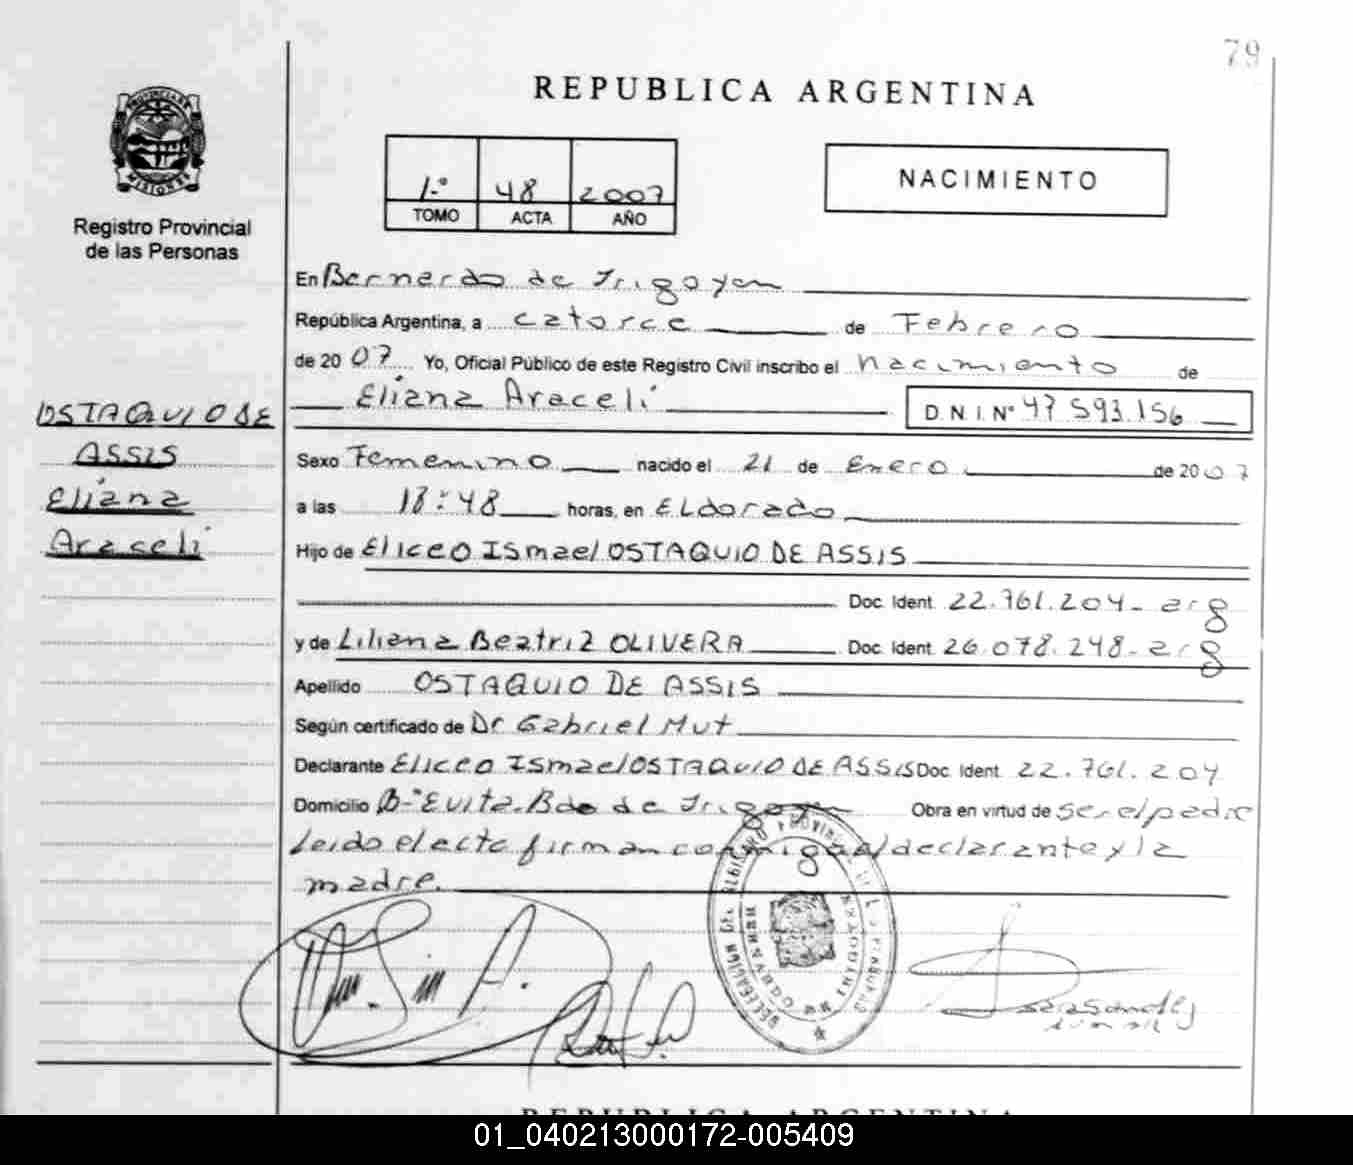 79
REPUBLICA ARGENTINA
PROVINCIA DE
MISIONES
Registro Provincial
de las Personas
1.º 48 2007
TOMO ACTA AÑO
NACIMIENTO
En Bernardo de Irigoyen
República Argentina, a catorce de Febrero
de 2007 Yo, Oficial Público de este Registro Civil inscribo el nacimiento de
Eliana Araceli D.N.I. Nº 47 593.156
OSTAQUIO DE
ASSIS
Eliana
Araceli
Sexo Femenino nacido el 21 de Enero de 2007
a las 18:48 horas, en ELdorado
Hijo de Eliceo Ismael OSTAQUIO DE ASSIS
Doc. Ident. 22.761.204- arg
y de Liliana Beatriz OLIVERA Doc. Ident. 26.078.248- arg
Apellido OSTAQUIO DE ASSIS
Según certificado de Dr Gabriel Mut
Declarante Eliceo Ismael OSTAQUIO DE ASSIS Doc. Ident. 22.761.204
Domicilio Bº Evita. Bdo de Irigoyen Obra en virtud de ser el padre
leido el acta firman conmigo el declarante y la
madre.
REPUBLICA ARGENTINA
01_040213000172-005409